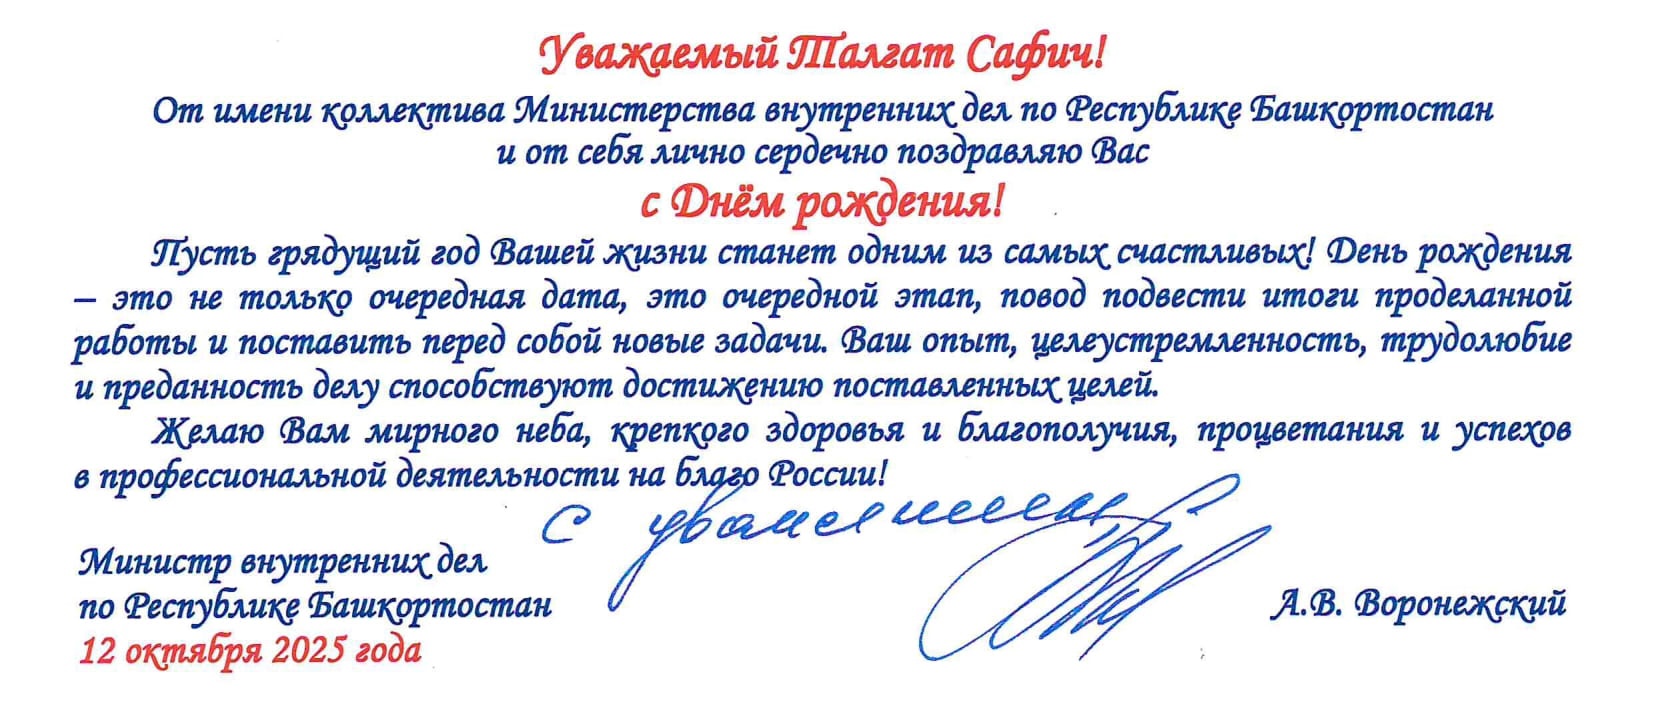 Уважаемый Талгат Сафич!
От имени коллектива Министерства внутренних дел по Республике Башкортостан
и от себя лично сердечно поздравляю Вас
с Днём рождения!
Пусть грядущий год Вашей жизни станет одним из самых счастливых! День рождения
– это не только очередная дата, это очередной этап, повод подвести итоги проделанной
работы и поставить перед собой новые задачи. Ваш опыт, целеустремленность, трудолюбие
и преданность делу способствуют достижению поставленных целей.
Желаю Вам мирного неба, крепкого здоровья и благополучия, процветания и успехов
в профессиональной деятельности на благо России!
С уважением
Министр внутренних дел
по Республике Башкортостан
А.В. Воронежский
12 октября 2025 года